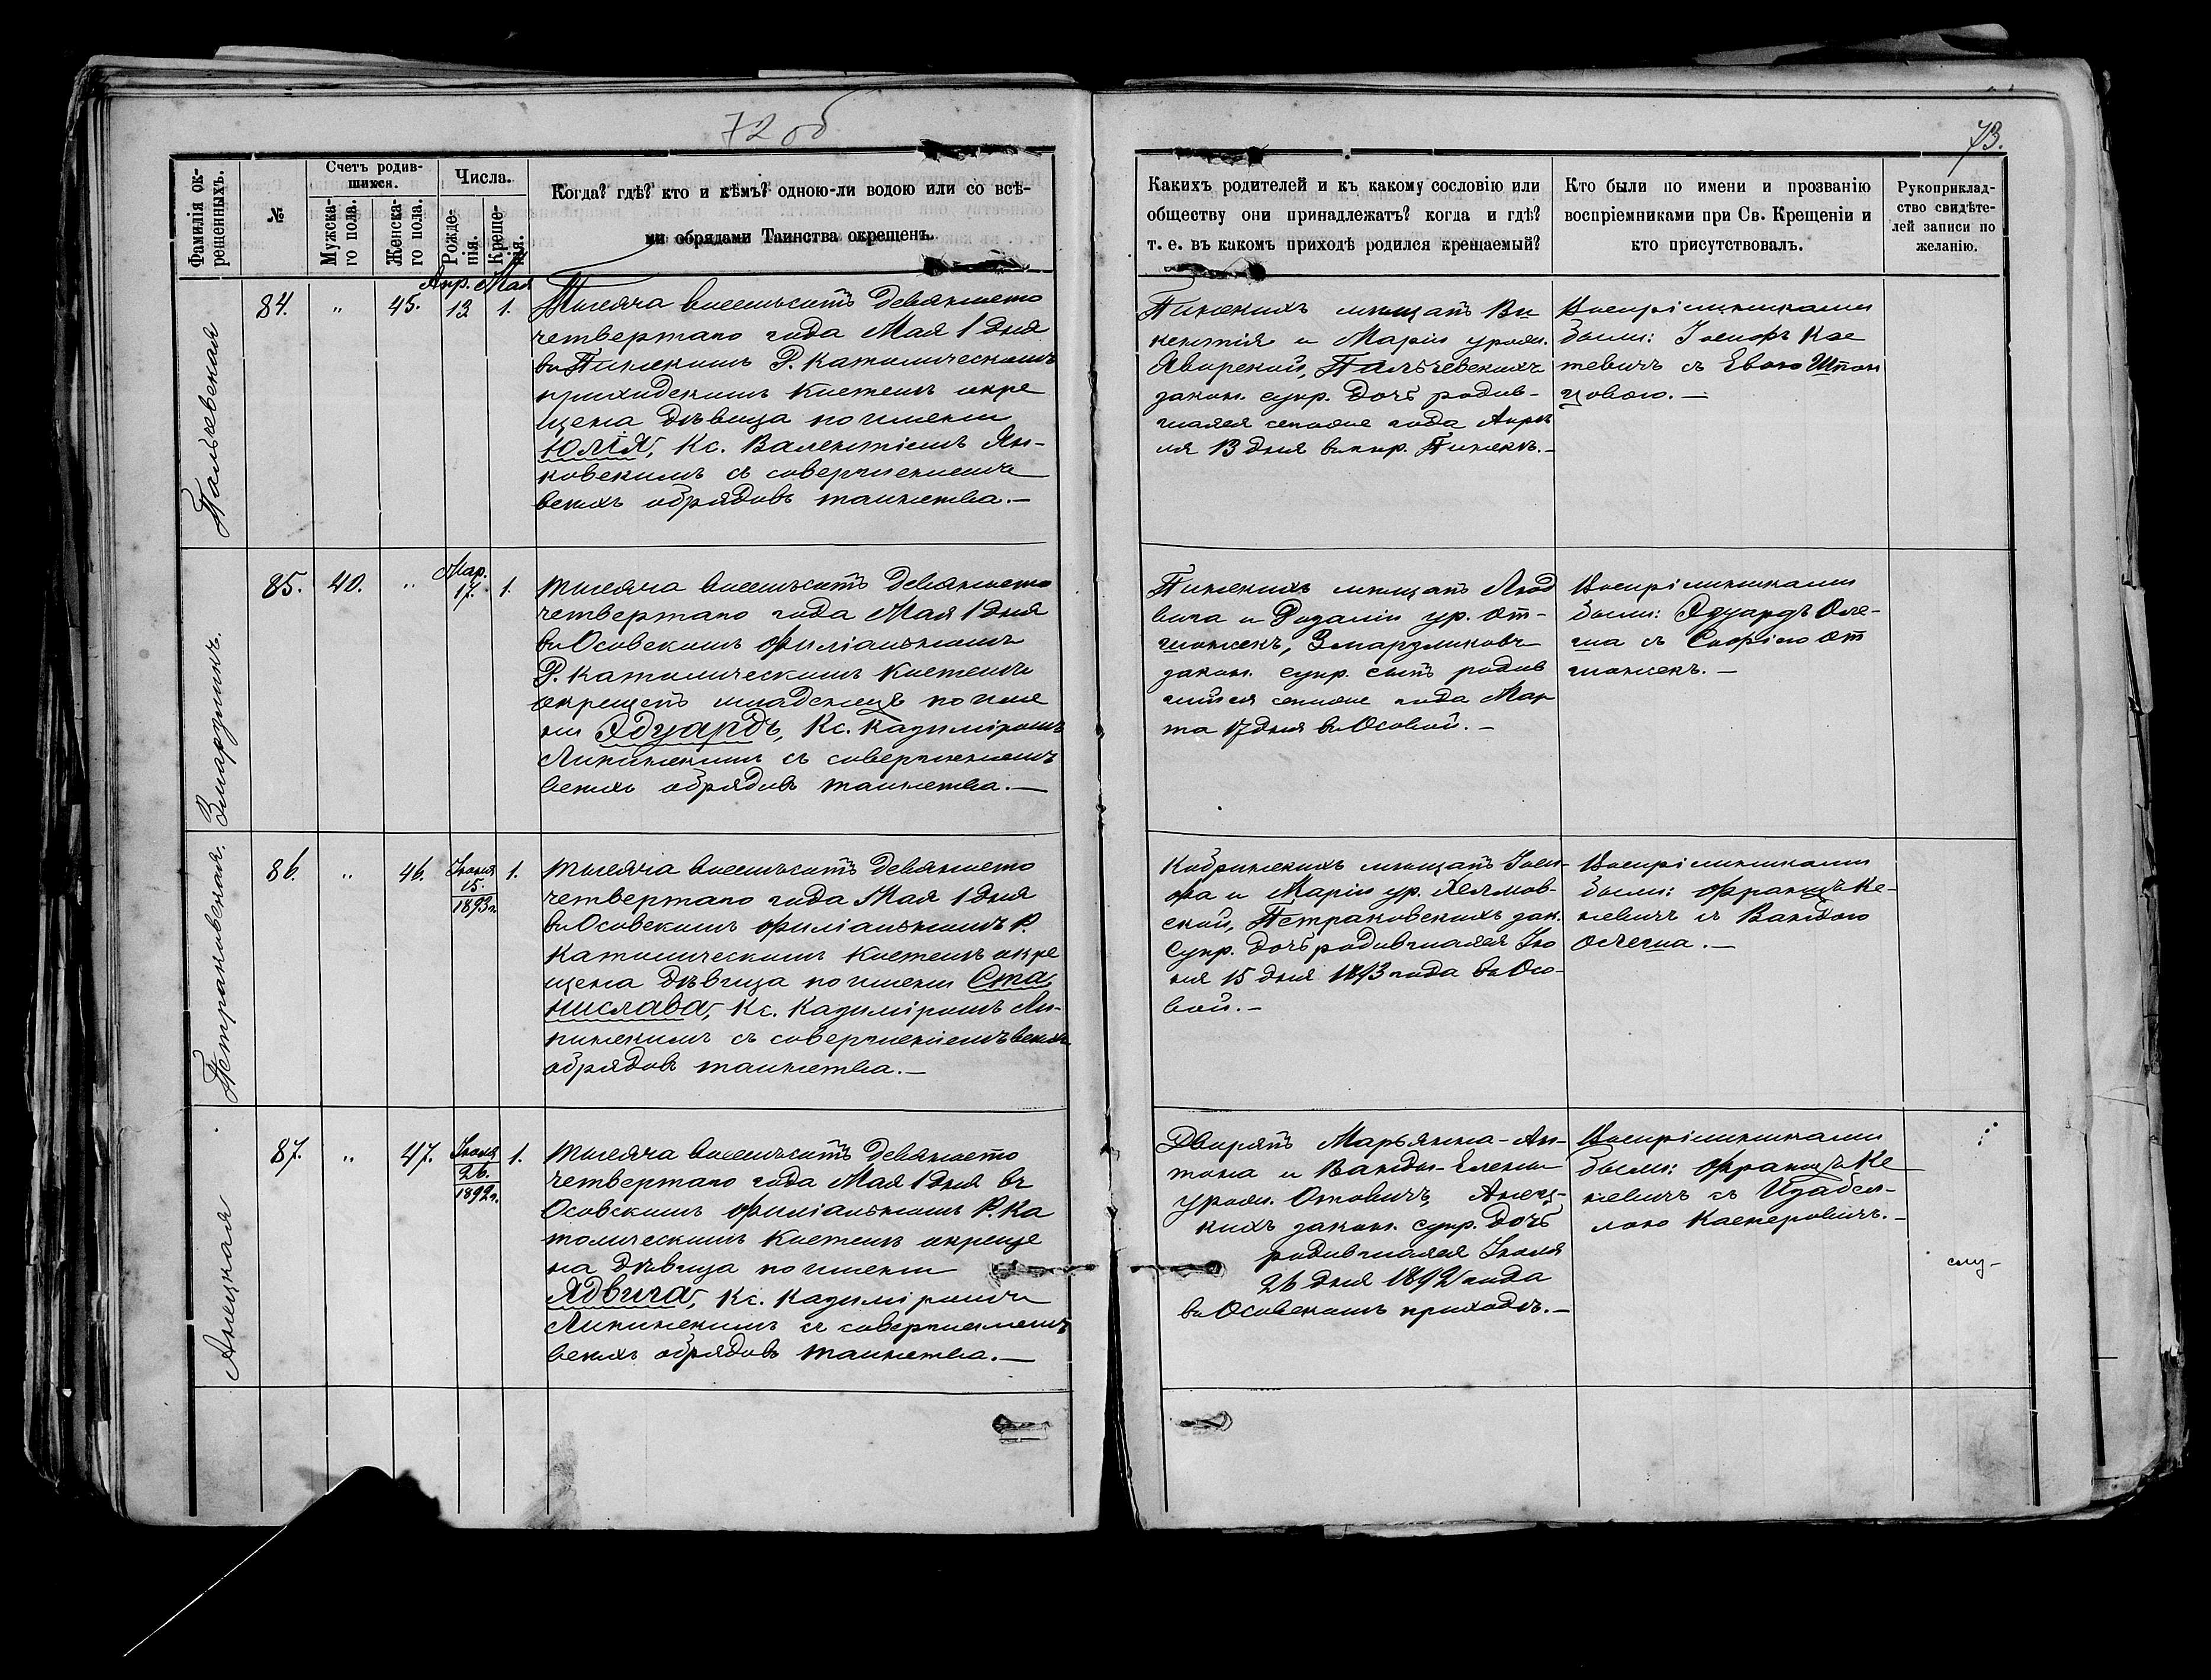 72 об
73.
Фамилія ок-
рещенныхъ.
№
Счетъ родив-
шихся.
Мужска-
го пола.
Женска-
го пола.
Числа.
Рожде-
нія.
Креще-
нія.
Когда? гдѣ? кто и кѣмъ? одною-ли водою или со всѣ-
ми обрядами Таинства окрещенъ.
Какихъ родителей и къ какому сословію или
обществу они принадлежатъ? когда и гдѣ?
т. е. въ какомъ приходѣ родился крещаемый?
Кто были по имени и прозванію
воспріемниками при Св. Крещеніи и
кто присутствовалъ.
Рукоприклад-
ство свидѣте-
лей записи по
желанію.
Пальчевская
84. " 45. Апр. 13 Мая 1.
Тысяча восемьсотъ девяносто
четвертаго года Мая 1 дня
въ Пинскомъ Р. Католическомъ
приходскомъ Костелѣ окре
щена дѣвица по имени
Юлія, Кс. Валентіемъ Ян-
ковскимъ съ совершеніемъ
всехъ обрядовъ таинства.—
Пинскихъ мѣщанъ Ви
кентія и Маріи урожд.
Яворской, Пальчевскихъ
закон. супр. дочь родив-
шаяся сего же года Апрѣ
ля 13 дня въ пр. Пинскѣ.—
Воспріемниками
были: Іосифъ Кас
тевичъ съ Евою Шпон
цовою.—
Змарзликъ.
85. 40. " Мар. 17. 1.
Тысяча восемьсотъ девяносто
четвертаго года Мая 1 дня
въ Осовскомъ филіальномъ
Р. Католическомъ Костелѣ
окрещенъ младенецъ по име
ни Эдуардъ, Кс. Казиміромъ
Липинскимъ съ совершеніемъ
всехъ обрядовъ таинства.—
Пинскихъ мѣщанъ Люд
вига и Розаліи ур. От-
шонсекъ, Змарзликовъ
закон. супр. сынъ родив
шійся сего же года Мар
та 17 дня въ Осовой.—
Воспріемниками
были: Эдуардъ Оле-
ша съ Софіею От
шонсекъ.—
Петраковская.
86. " 46. Іюня 15. 1893 г. 1.
Тысяча восемьсотъ девяносто
четвертаго года Мая 1 дня
въ Осовскомъ филіальномъ Р.
Католическомъ Костелѣ окре
щена дѣвица по имени Ста
нислава, Кс. Казиміромъ Ли-
пинскимъ съ совершеніемъ всехъ
обрядовъ таинства.—
Кобринскихъ мѣщанъ Іоси-
фа и Маріи ур. Хелмов-
ской, Петраковскихъ зак.
супр. дочь родившаяся Ію
ня 15 дня 1893 года въ Осо-
вой.—
Воспріемниками
были: Францъ Ке-
невичъ съ Вандою
Олеша.—
Анецкая
87. " 47. Іюля 26. 1892 г. 1.
Тысяча восемьсотъ девяносто
четвертаго года Мая 1 дня въ
Осовскомъ филіальномъ Р. Ка
толическомъ Костелѣ окреще
на дѣвица по имени
Ядвига, Кс. Казиміромъ
Липинскимъ съ совершеніемъ
всехъ обрядовъ таинства.—
Дворянъ Марьяна-Ан-
тона и Ванды-Елены
урожд. Отовичъ, Анец-
кихъ закон. супр. дочь
родившаяся Іюля
26 дня 1892 года
въ Осовскомъ приходѣ.—
Воспріемниками
были: Францъ Ке
невичъ съ Изабел-
лою Касперовичъ.—